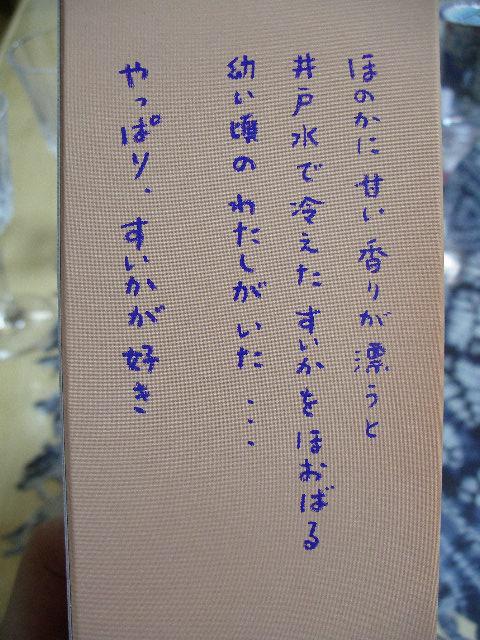 ほのかに 甘い 香りが 漂うと
井戸水で冷えた すいかをほおばる
幼い頃の わたしがいた・・・
やっぱり、すいかが 好き